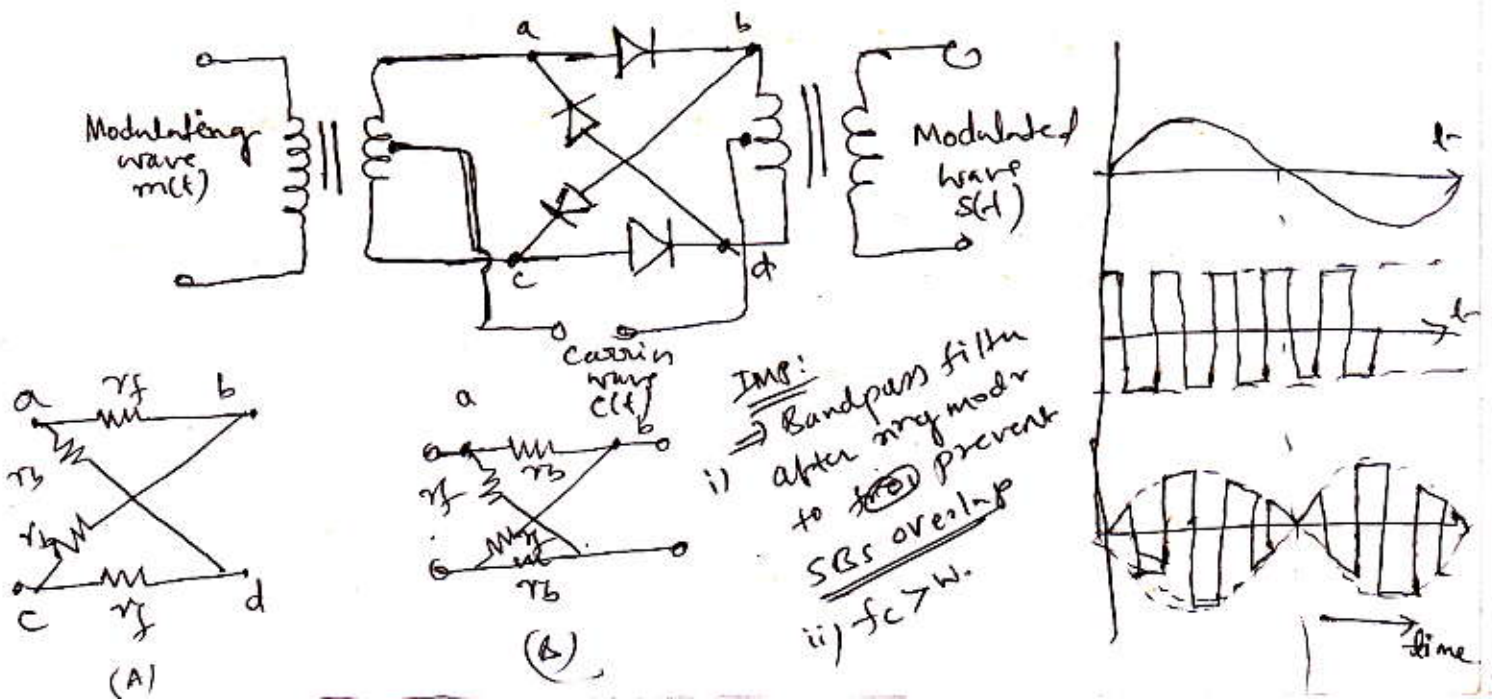 a
b
Modulating
wave
m(t)
Modulated
wave
S(t)
t
c
d
Carrier
wave
c(t)
t
a
rf
b
rb
rb
c
rf
d
(A)
a
rb
b
rf
rf
rb
IMP:
i) ⇒ Bandpass filter
after ring modr
to prevent
SBS overlap
ii) fc > W.
time